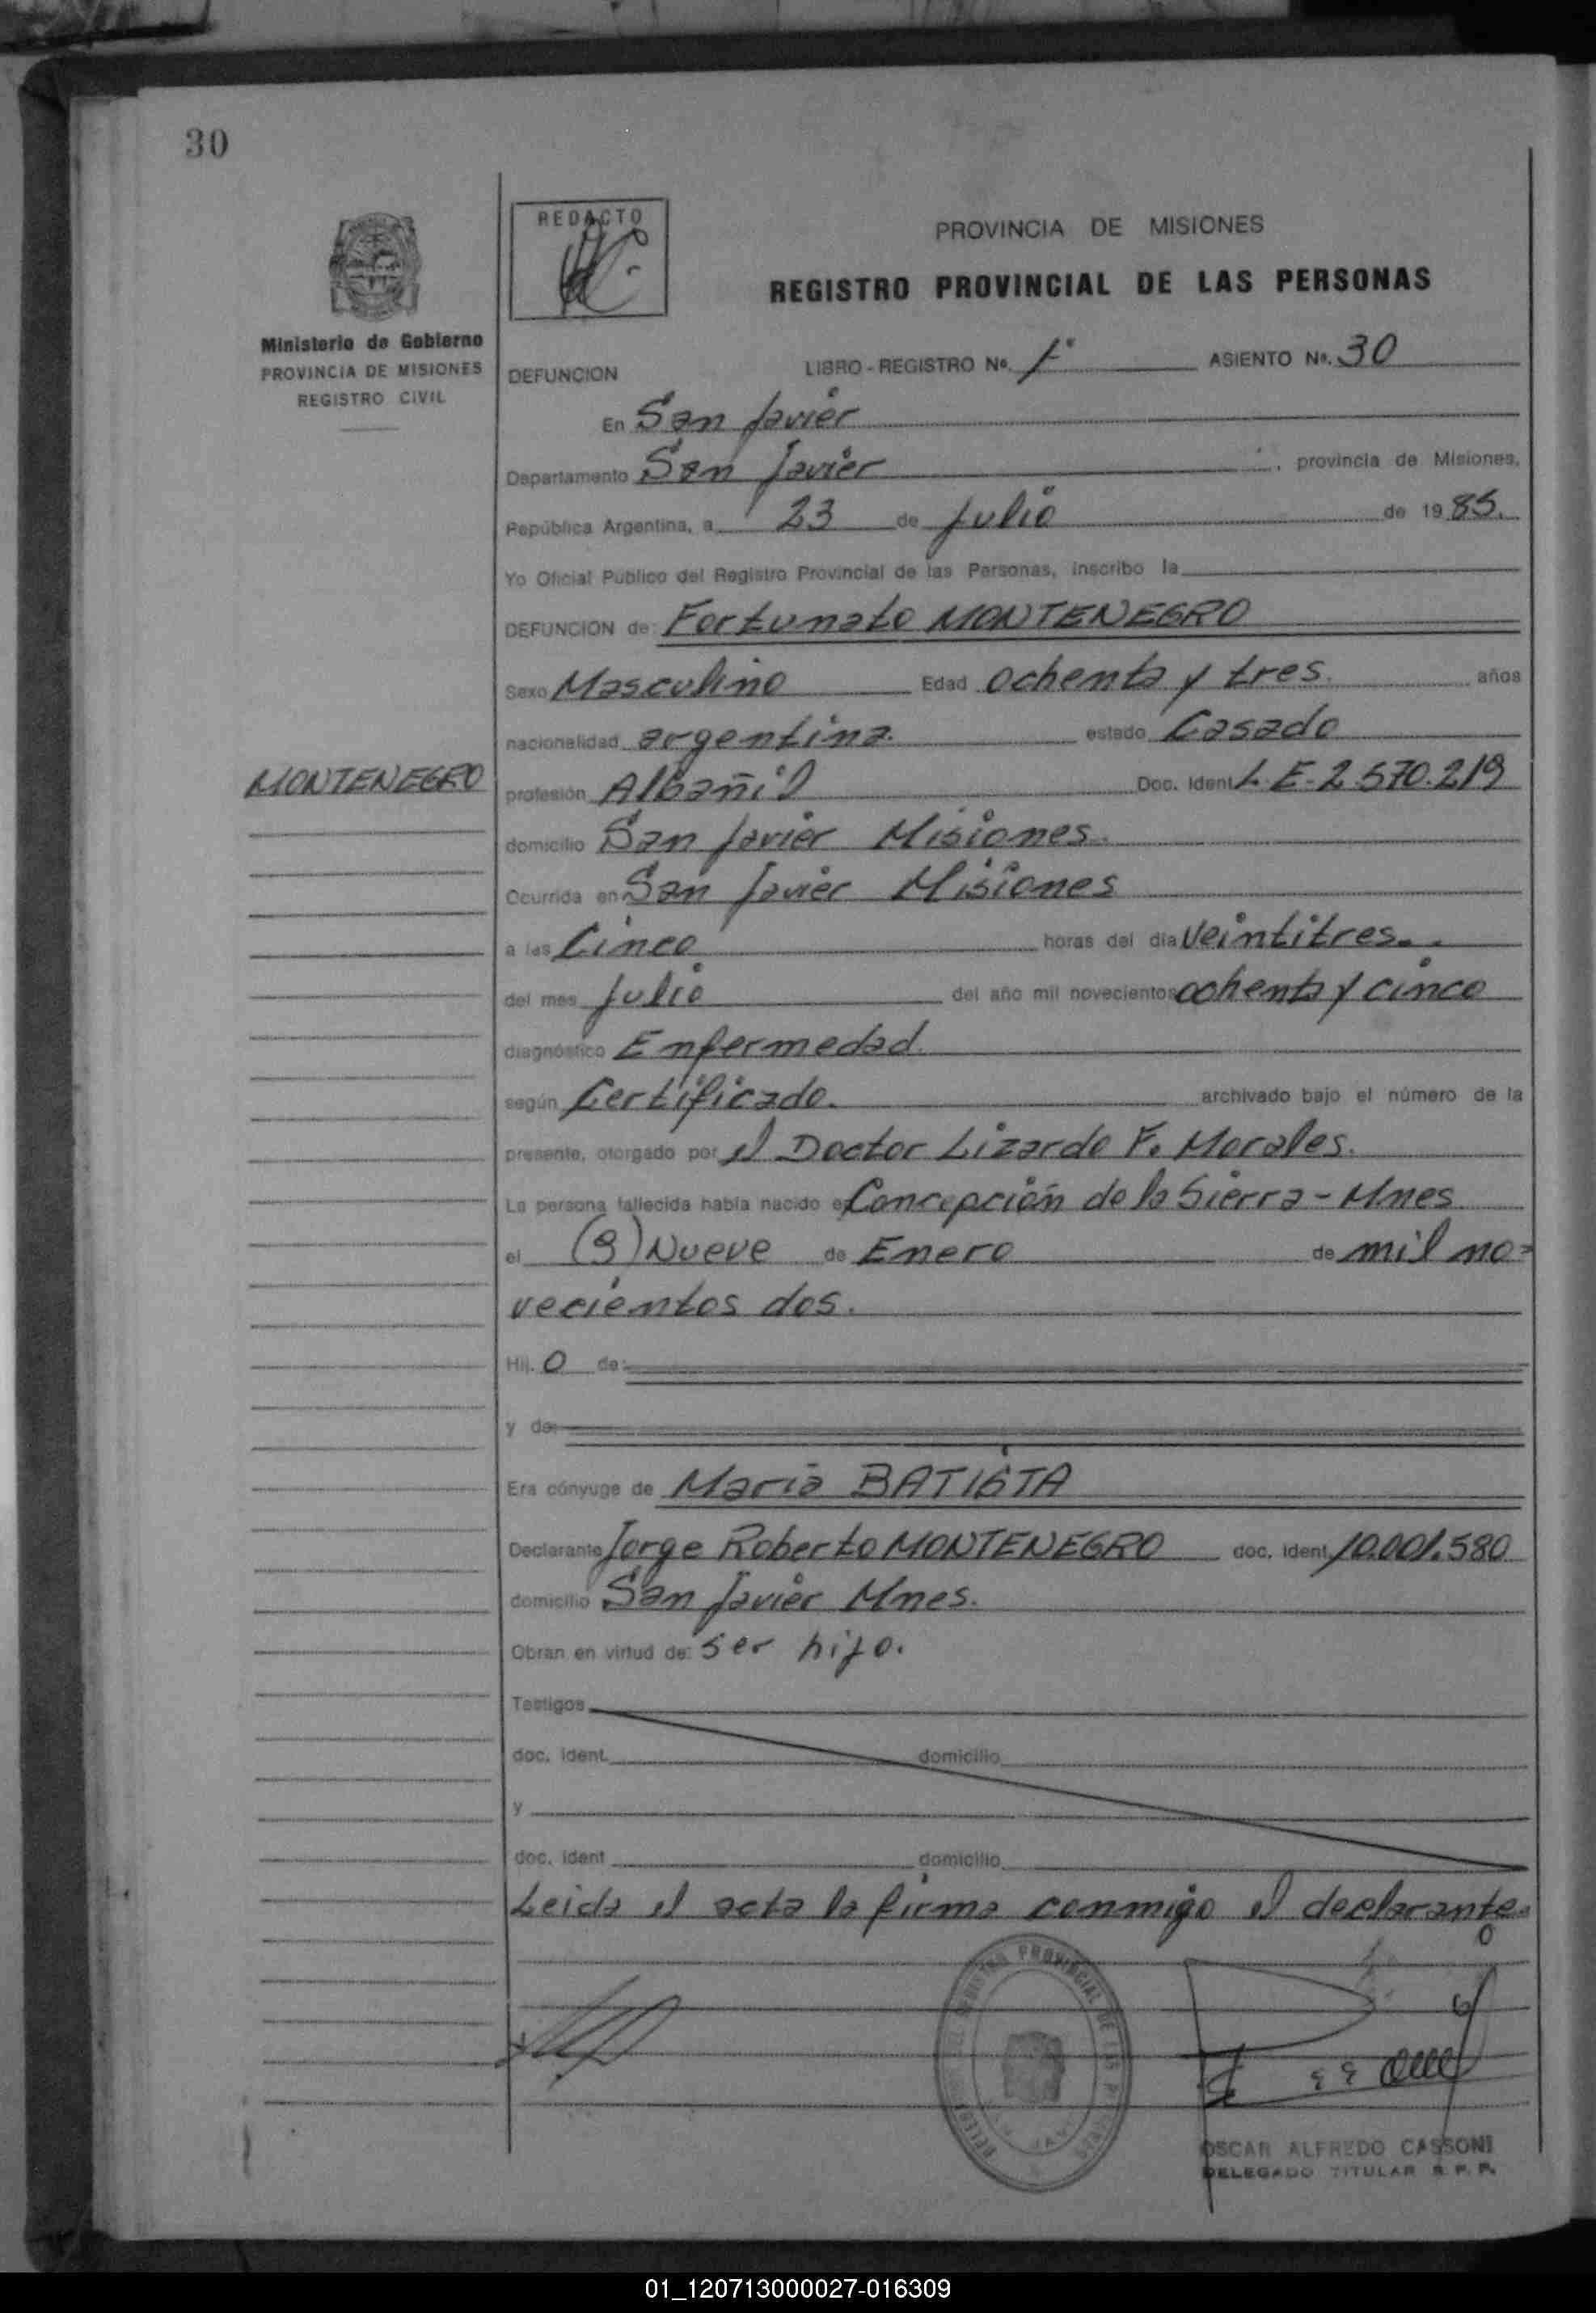 30
REDACTO
PROVINCIA DE MISIONES
REGISTRO PROVINCIAL DE LAS PERSONAS
Ministerio de Gobierno
PROVINCIA DE MISIONES
REGISTRO CIVIL
DEFUNCION LIBRO - REGISTRO Nº. 1º ASIENTO Nº. 30
En San Javier
Departamento San Javier , provincia de Misiones,
República Argentina, a 23 de Julio de 1985.
Yo Oficial Publico del Registro Provincial de las Personas, inscribo la
DEFUNCION de: Fortunato MONTENEGRO
Sexo Masculino Edad ochenta y tres. años
nacionalidad argentina. estado Casado
MONTENEGRO
profesión Albañil Doc. Ident L.E-2.570.219
domicilio San Javier Misiones.
Ocurrida en San Javier Misiones
a las Cinco horas del día veintitres.
del mes Julio del año mil novecientos ochenta y cinco
diagnóstico Enfermedad.
según Certificado. archivado bajo el número de la
presente, otorgado por el Doctor Lizardo F. Morales.
La persona fallecida había nacido en Concepción de la Sierra - Mnes
el (9) Nueve de Enero de mil no=
vecientos dos.
Hij. o de:
y de:
Era cónyuge de Maria BATISTA
Declarante Jorge Roberto MONTENEGRO doc. ident. 10.001.580
domicilio San Javier Mnes.
Obran en virtud de: ser hijo.
Testigos
doc. ident. domicilio
y
doc. ident domicilio
Leida el acta la firma conmigo el declarante.
REGISTRO PROVINCIAL DE LAS
OSCAR ALFREDO CASSONI
DELEGADO TITULAR R. P. P.
01_120713000027-016309